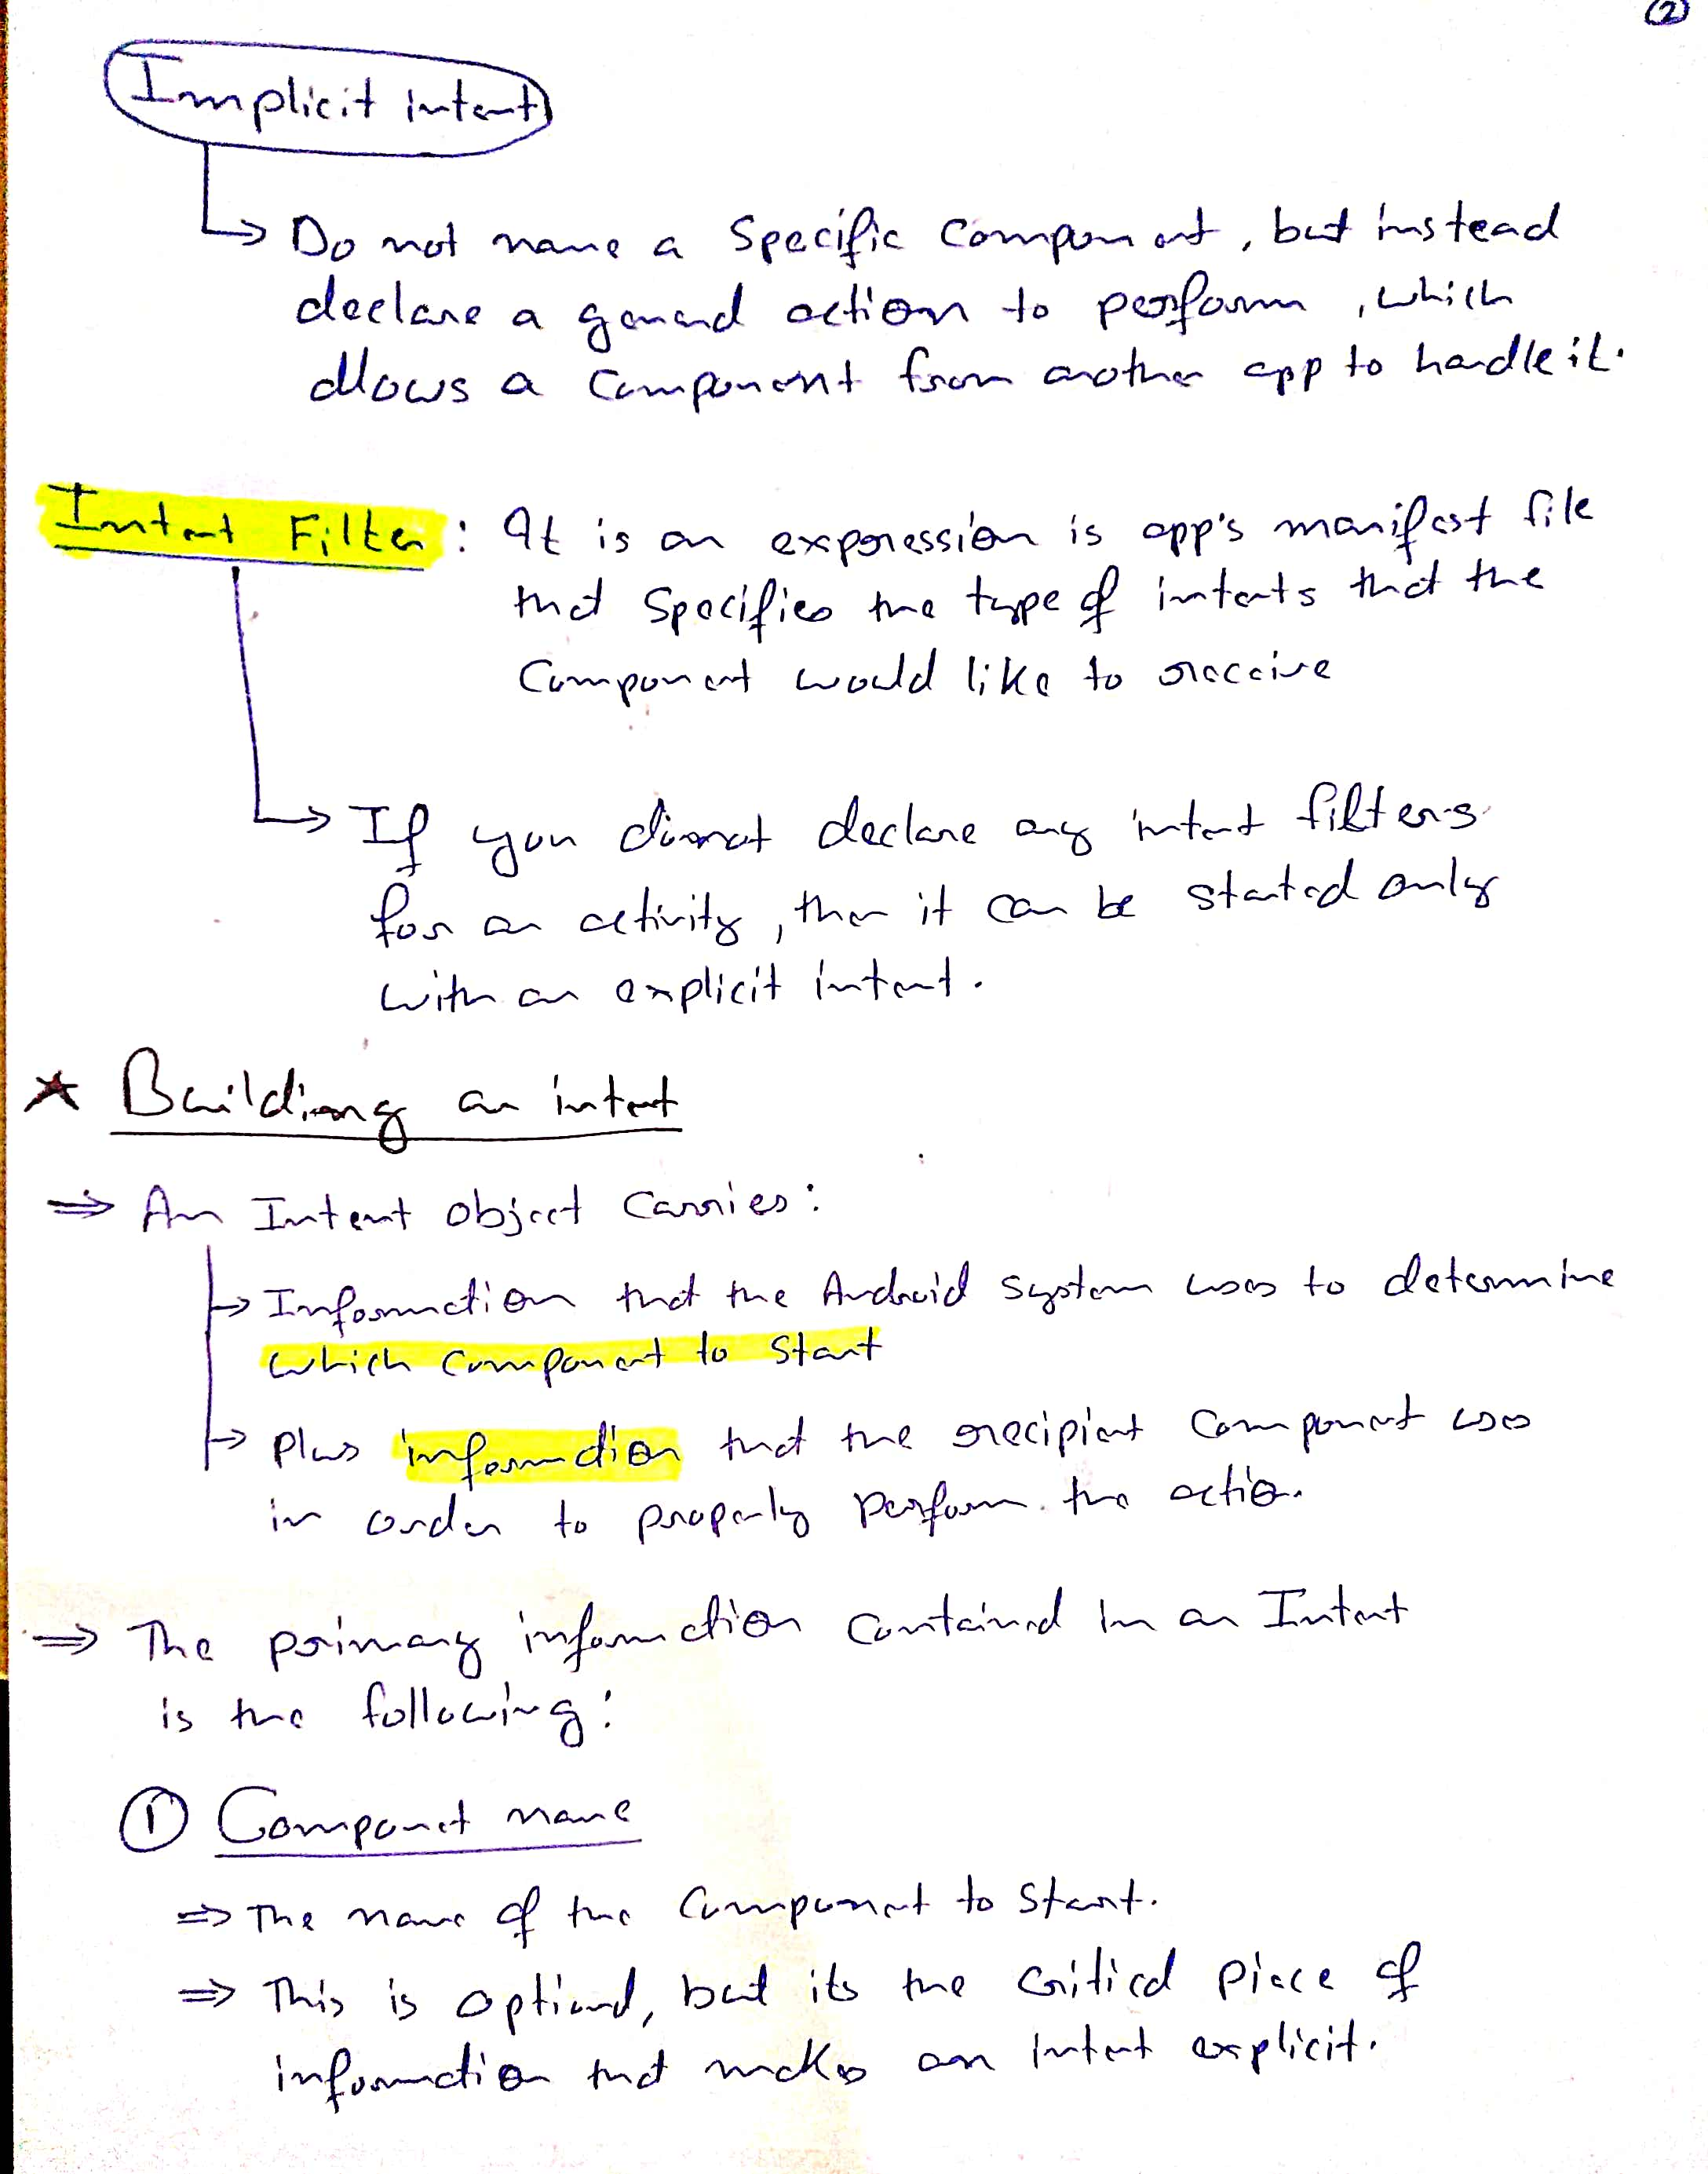 2
Implicit intent
→ Do not name a specific component, but instead
declare a general action to perform, which
allows a component from another app to handle it.
Intent Filter : It is an expression is app's manifest file
that specifies the type of intents that the
component would like to receive
→ If you donot declare any intent filters
for an activity, then it can be started only
with an explicit intent.
* Building an intent
⇒ An Intent object carries:
→ Information that the Android system uses to determine
which component to start
→ Plus information that the recipient component uses
in order to properly perform the action.
⇒ The primary information contained in an Intent
is the following:
① Component name
⇒ The name of the component to start.
⇒ This is optional, but its the critical piece of
information that makes an intent explicit.